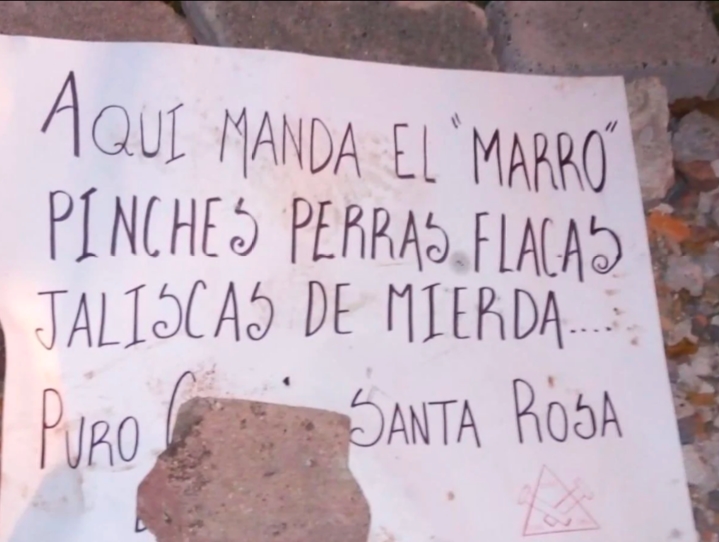 AQUI MANDA EL "MARRO"
PINCHES PERRAS FLACAS
JALISCAS DE MIERDA....
PURO SANTA ROSA